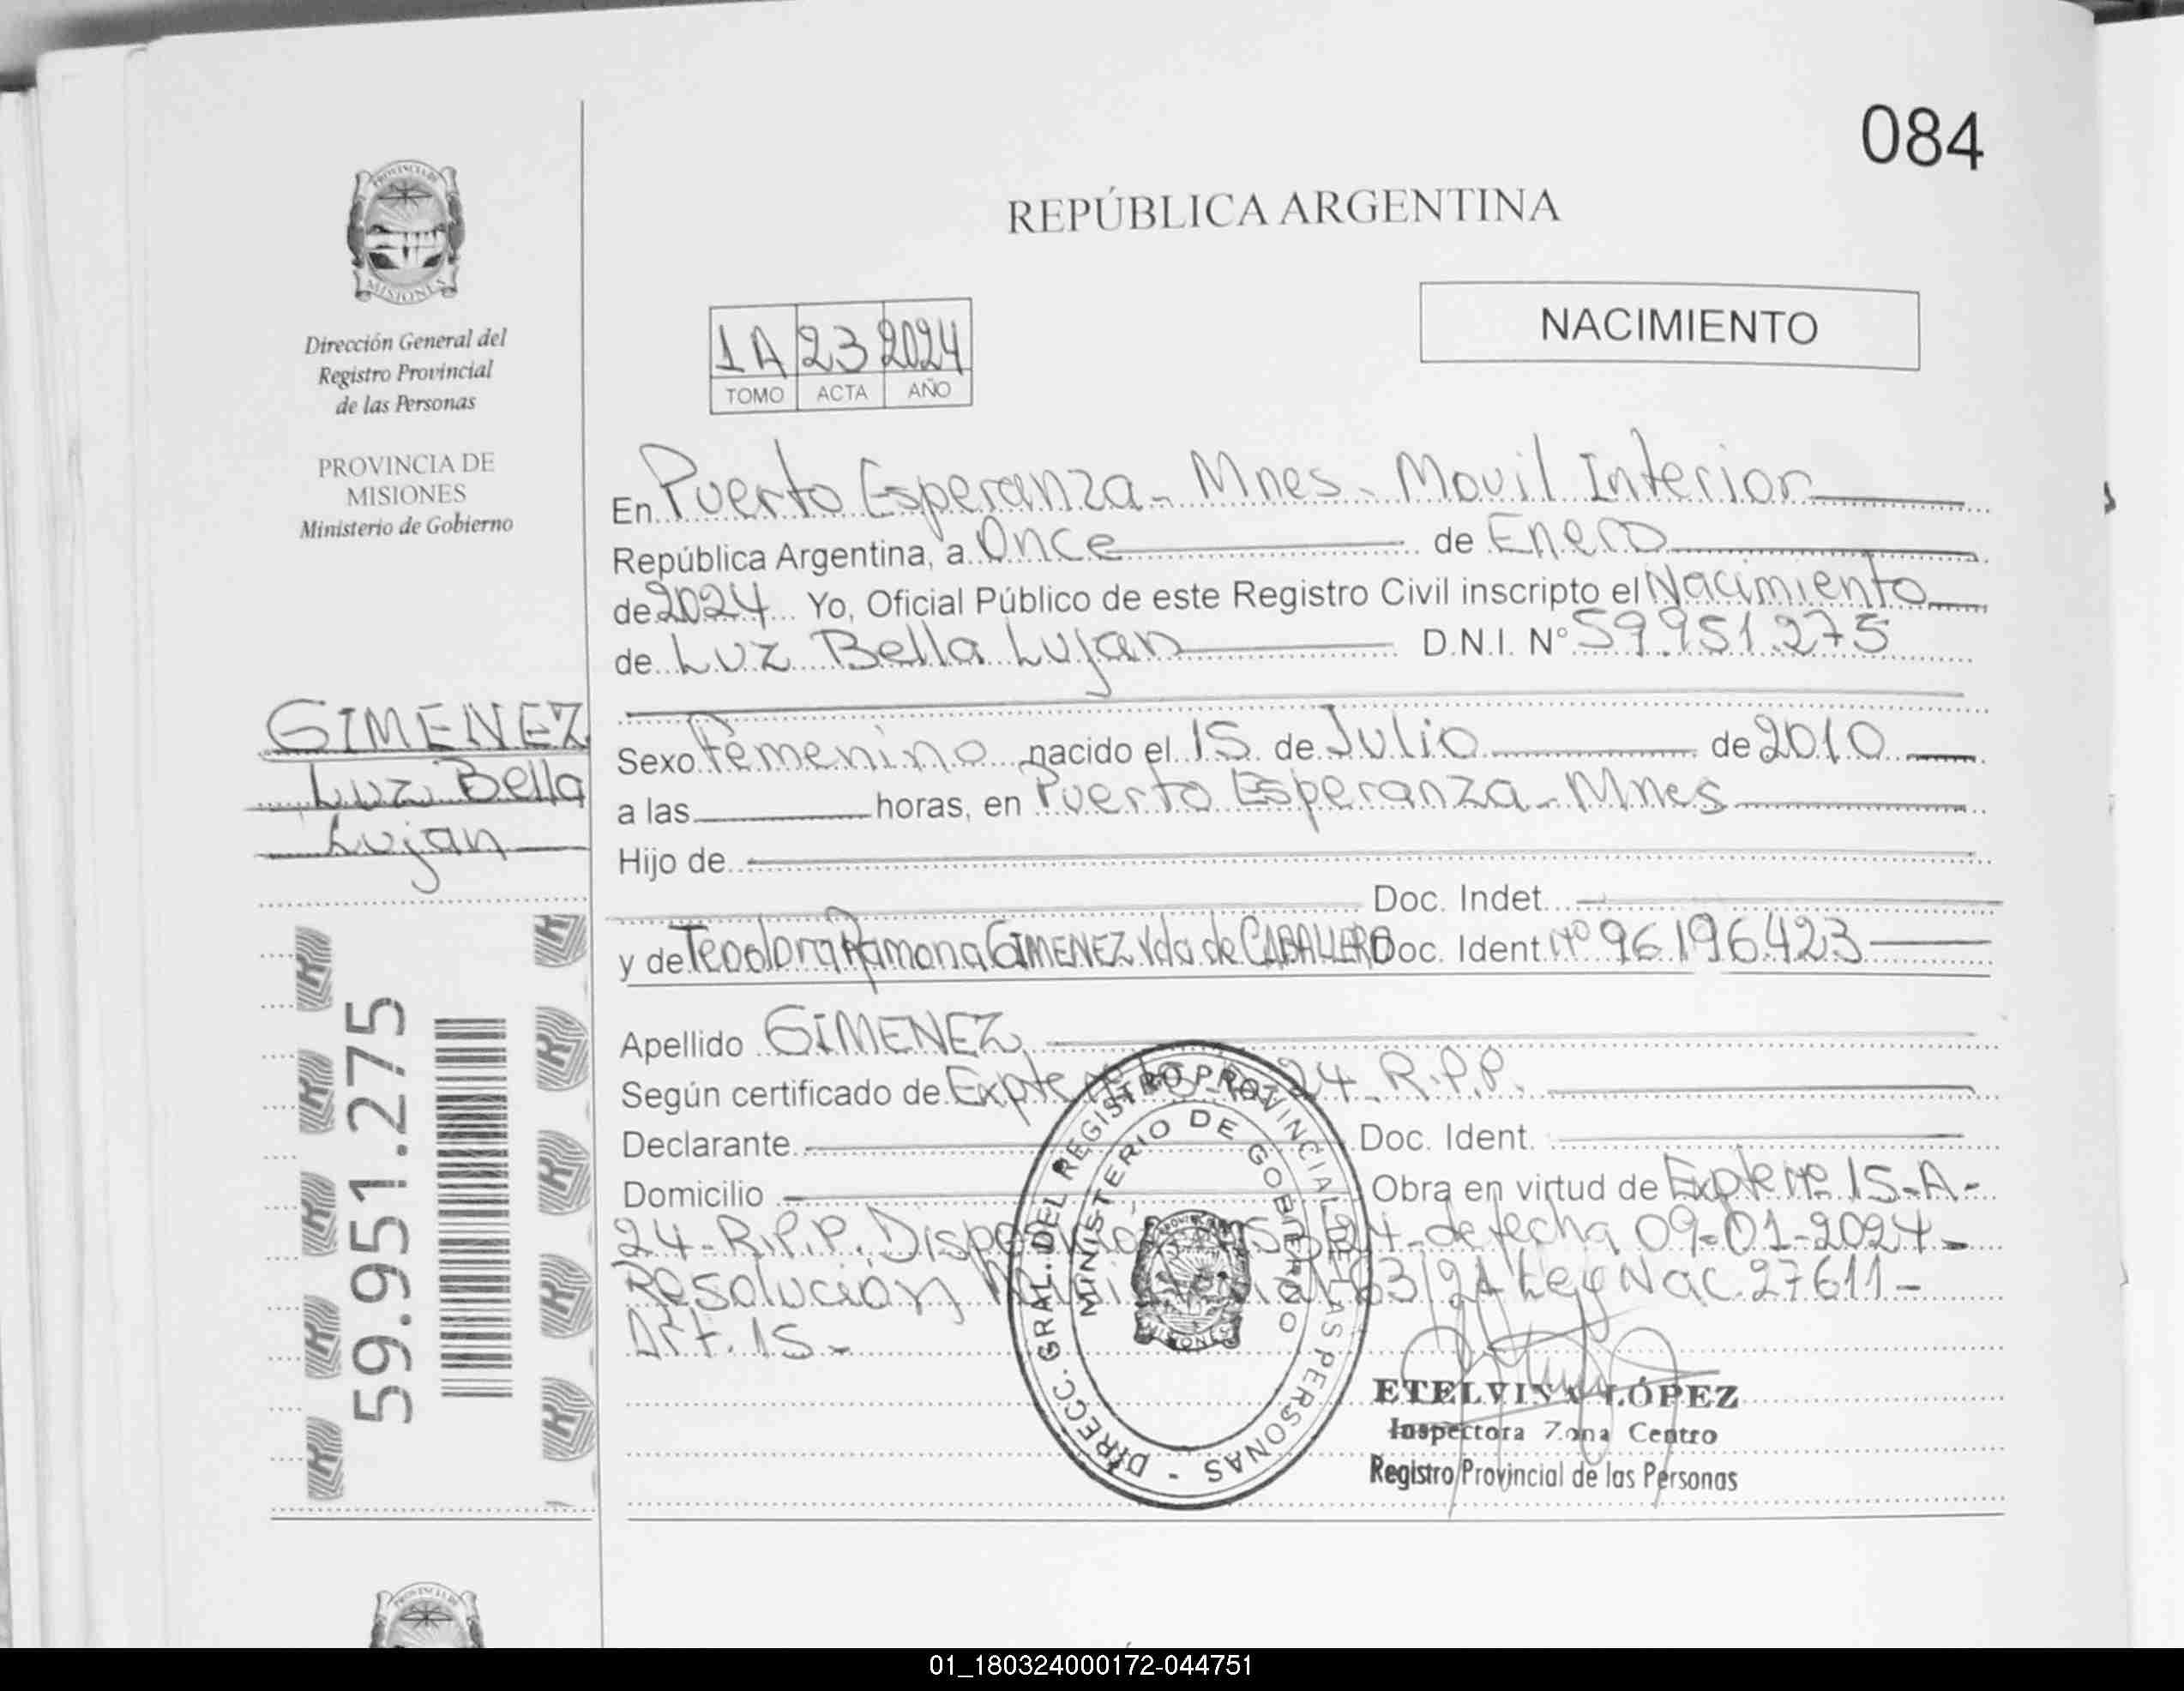 084
REPÚBLICA ARGENTINA
PROVINCIA DE
MISIONES
Dirección General del
Registro Provincial
de las Personas
PROVINCIA DE
MISIONES
Ministerio de Gobierno
NACIMIENTO
1A 23 2024
TOMO ACTA AÑO
En Puerto Esperanza - Mnes - Movil Interior
República Argentina, a Once de Enero
de 2024 Yo, Oficial Público de este Registro Civil inscripto el Nacimiento
de Luz Bella Lujan D.N.I. N° 59951.275
GIMENEZ
Luz Bella
Lujan
Sexo Femenino nacido el 15 de Julio de 2010
a las horas, en Puerto Esperanza - Mnes
Hijo de
Doc. Indet.
y de Teodora Ramona GIMENEZ Vda de CABALLERO Doc. Ident. Nº 96196423
Apellido GIMENEZ
Según certificado de Expte 24 R.P.P.
Declarante Doc. Ident.
Domicilio Obra en virtud de Expte Nº 15-A-
24-R.P.P. de fecha 09-01-2024-
Resolución Ley Nac 27611-
Art. 15-
59.951.275
DIRECC. GRAL. DEL REGISTRO PROVINCIAL DE LAS PERSONAS -
MINISTERIO DE GOBIERNO
MISIONES
ETELVINA LÓPEZ
Inspectora Zona Centro
Registro Provincial de las Personas
01_180324000172-044751